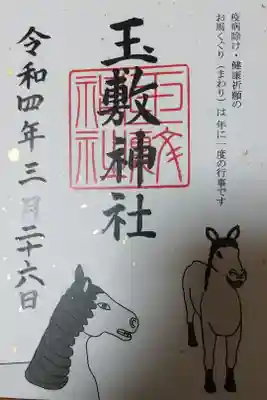 疫病除け・健康祈願の
お馬くぐり（まわり）は 年に一度の行事です
玉敷神社
令和四年三月二十六日